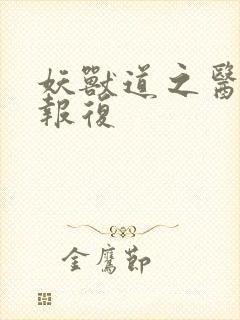 妖獸道之醫
報復
金鷹節